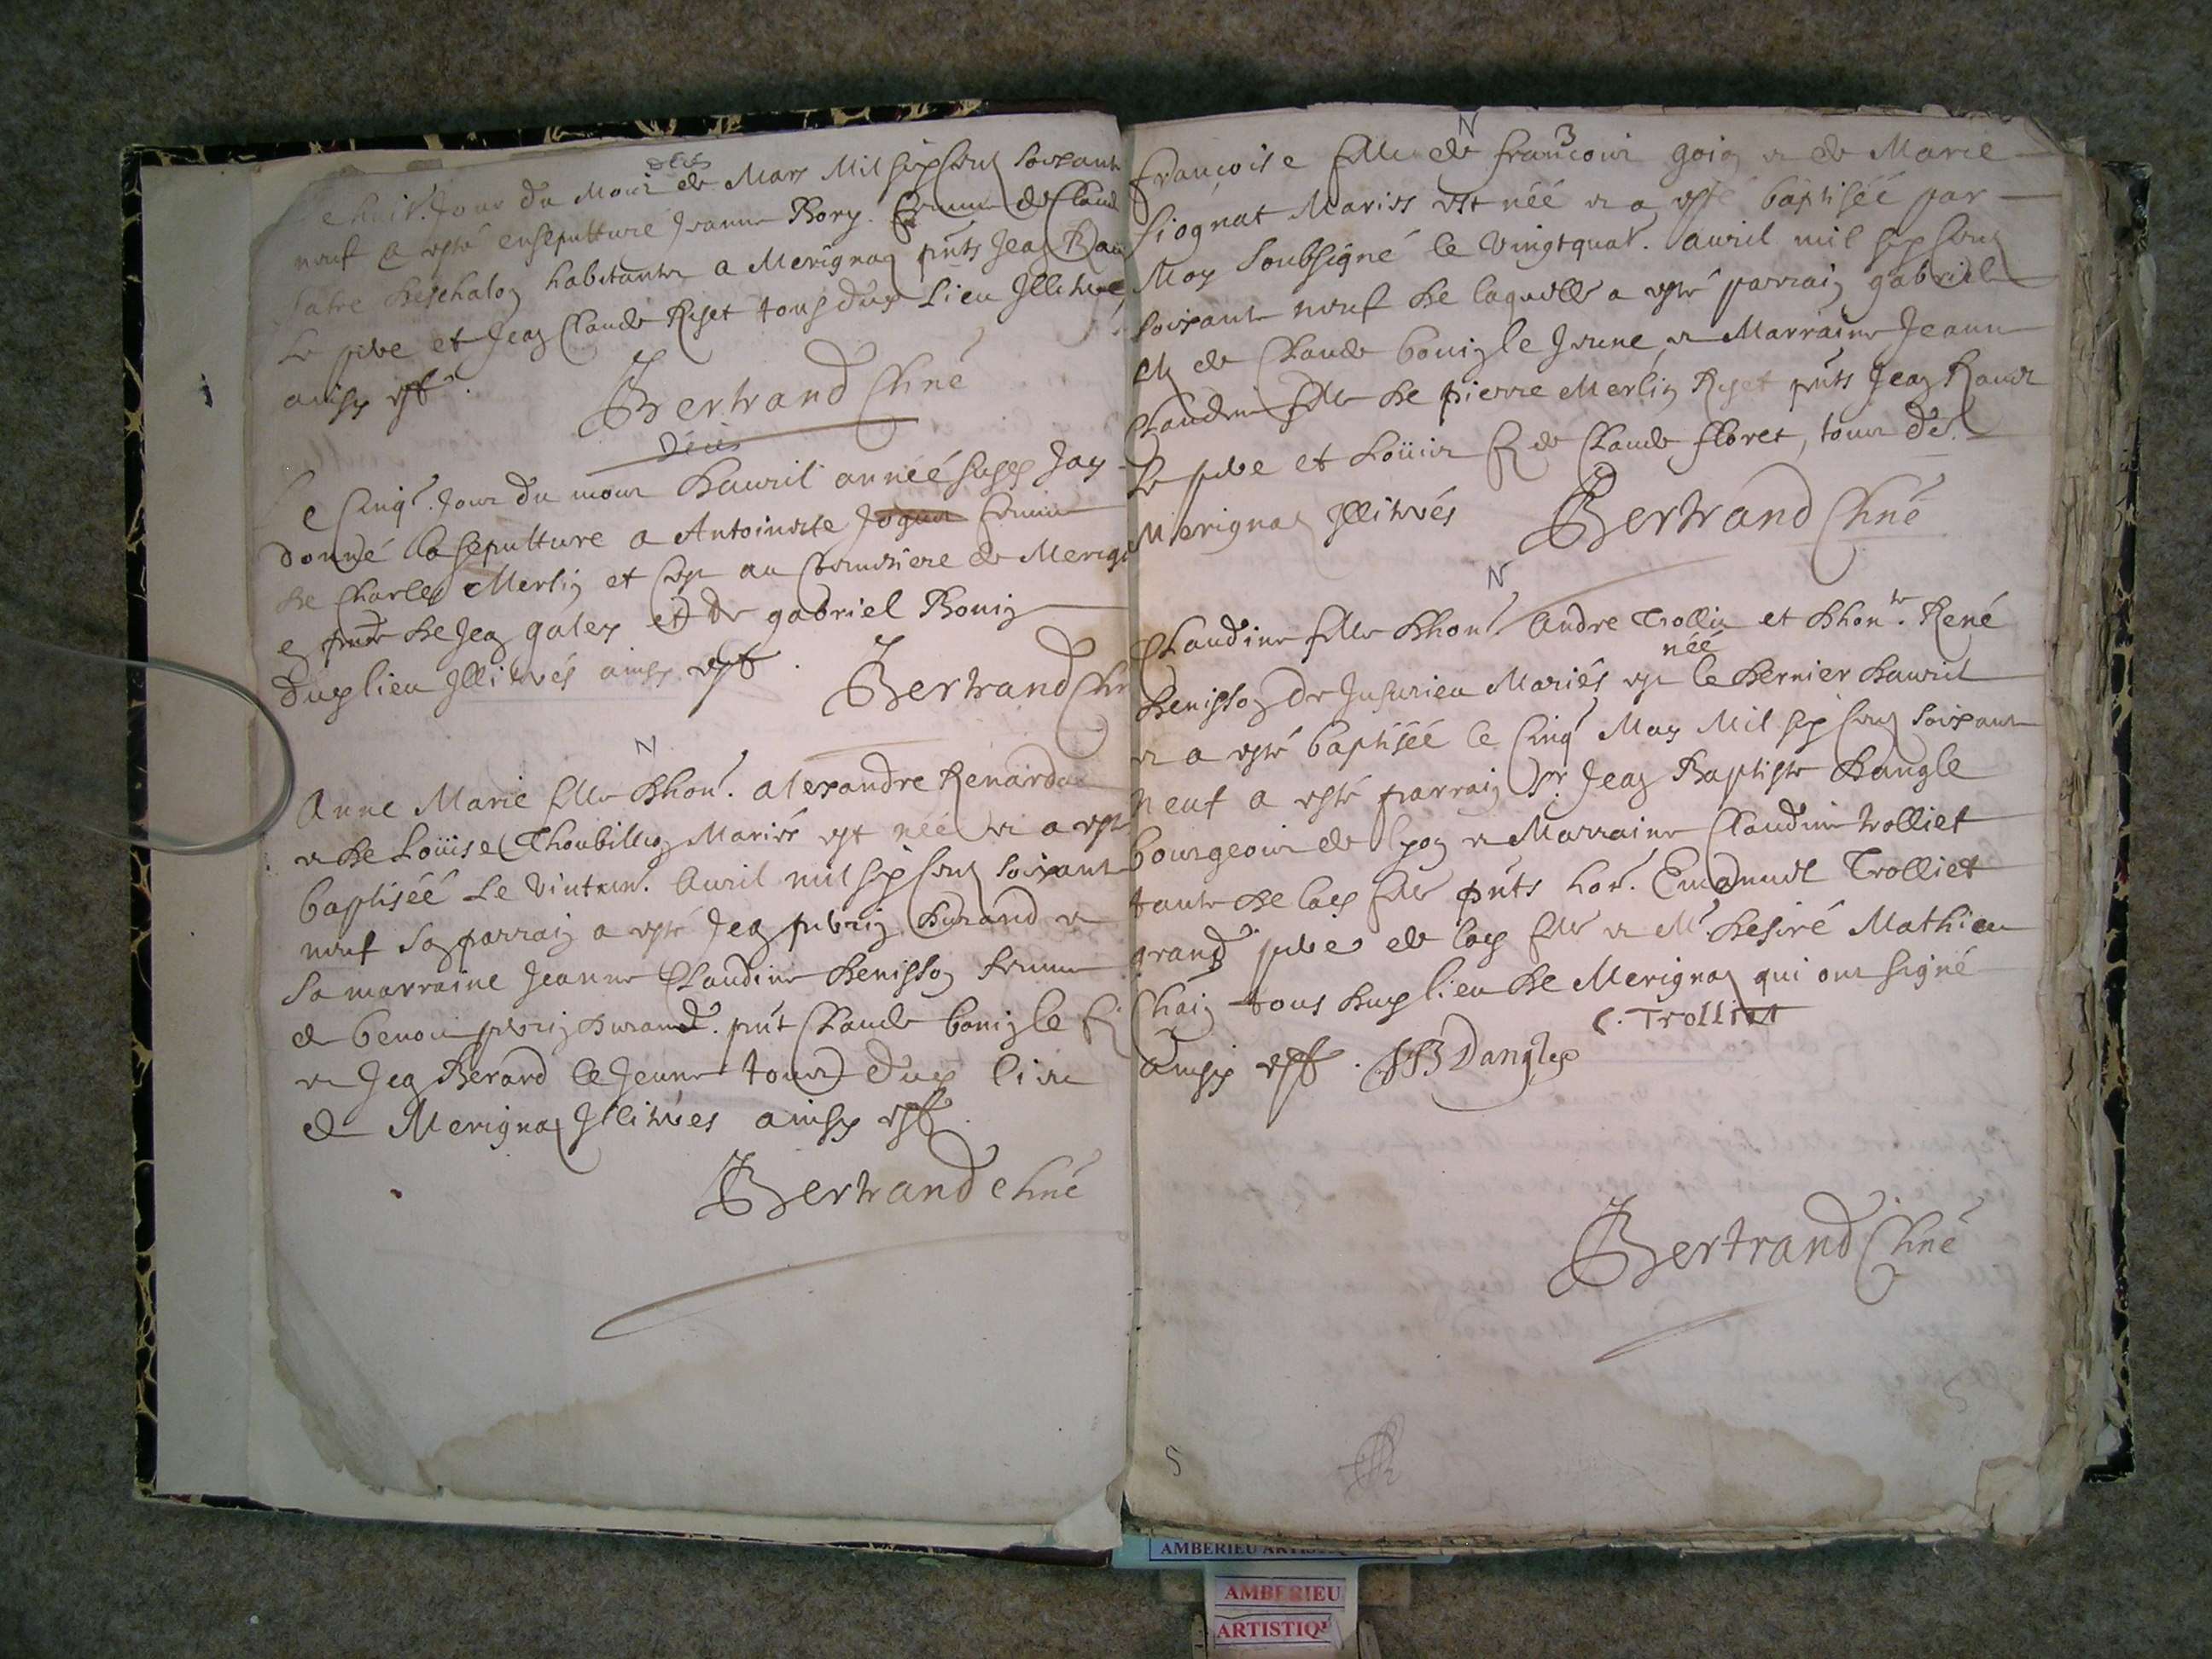 décès
e huit. Jour du Mois de Mars Mil six Cent soixante
neuf a esté ensepulturé Jeanne Bory. femme de Claude
habitante a Merignaz pnts Jean
Le père et Jean Claude Ryset tous dud Lieu Illiterés
ainsy est.
Bertrand Chné
Décès
e Cinq. Jour du mois Davril année susd Jay
donné la sepulture a Antoinette femme
de Charles Merlin et Ce au Cemetiere de Merigna
en pnce de Jean galey et de gabriel Bouin
dud lieu Illiterés ainsy est.
Bertrand Chn
N
Anne Marie fille dhon. alexandre Renardon
et de Loüise Thoubillon Mariés est néé et a esté
baptiséé Le vint. Avril mil six Cent soixante
neuf son parrain a esté Jean durand et
sa marraine Jeanne Claudine Denisson femme
de benoit durand. pnt Claude bouin le
et Jean Berard le Jeune tous dud lieu
de Merignaz Illiterés ainsy est.
Bertrand Chné
N 3
françoise fille de françois goin et de Marie
siognat Mariés est néé et a esté baptiséé par
Moy soubsigné le vingtquat. avril mil six Cent
soixante neuf de laquelle a esté parrain gabriel
fils de Claude bouin le Jeune et Marraine Jeanne
Claudine fille de pierre Merlin Ryset pnts Jean
Le père et Loüis f de Claude floret, tous de
Merignaz Illiterés Bertrand Chné
N
Claudine fille dhon. andre Trollier et dhonte. René
néé
Denisson de Jusurieu Mariés est le dernier davril
et a esté baptiséé le Cinq May Mil six Cent soixante
neuf a esté parrain Sr. Jean Baptiste Dangle
bourgeois de lyon et Marraine Claudine trolliet
tante de lad fille pnts hon. Emanuel Trolliet
grand père de lad fille et Mr desiré Mathieu
Chain tous dud lieu de Merignaz qui ont signé
C. Trolliet
ainsy est. JB Dangles
Bertrand Chné
5
AMBERIEU ARTISTIQUE
AMBERIEU
ARTISTIQU